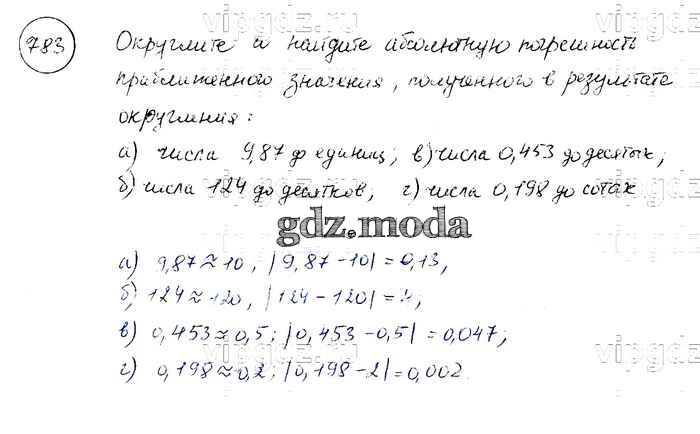 vipgdz.ru vipgdz
783 Округлите и найдите абсолютную погрешность
приближенного значения, полученного в результате
округления:
а) числа 9,87 до единиц; в) числа 0,453 до десятых;
б) числа 124 до десятков; г) числа 0,198 до сотах
vipgdz.ru vipgdz
gdz.moda
а) 9,87≈10, |9,87-10|=0,13,
б) 124≈120, |124-120|=4;
в) 0,453≈0,5; |0,453-0,5|=0,047;
г) 0,198≈0,2; |0,198-2|=0,002.
vipgdz.ru vipgdz